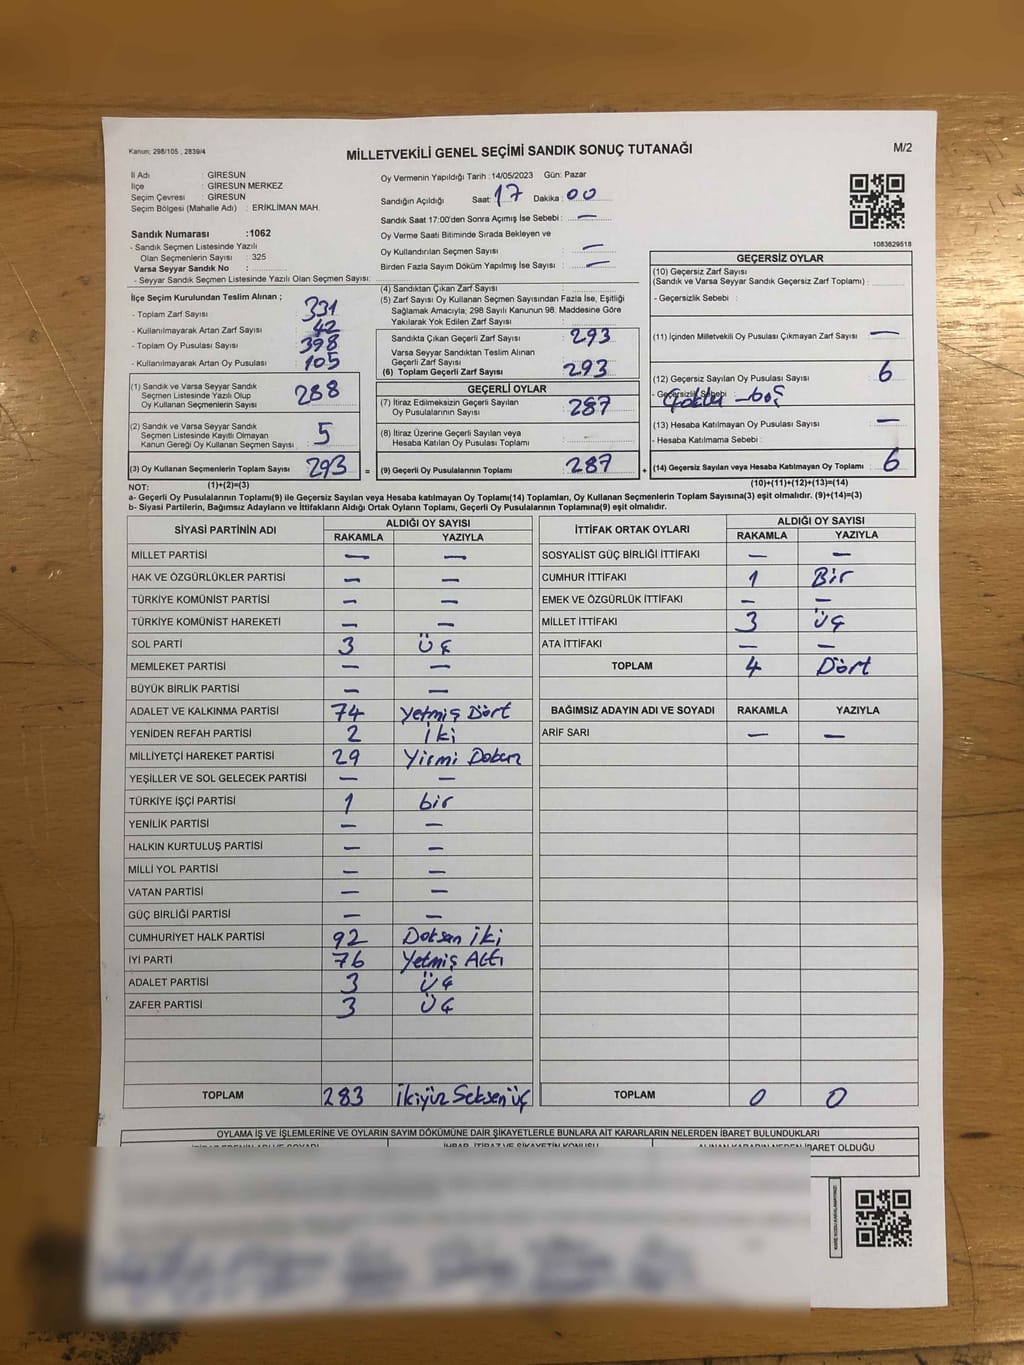 Kanun; 298/105 , 2839/4
MİLLETVEKİLİ GENEL SEÇİMİ SANDIK SONUÇ TUTANAĞI
M/2
İl Adı : GİRESUN
İlçe : GİRESUN MERKEZ
Seçim Çevresi : GİRESUN
Seçim Bölgesi (Mahalle Adı) : ERİKLİMAN MAH.
Sandık Numarası :1062
- Sandık Seçmen Listesinde Yazılı
Olan Seçmenlerin Sayısı : 325
Varsa Seyyar Sandık No :
- Seyyar Sandık Seçmen Listesinde Yazılı Olan Seçmen Sayısı:
Oy Vermenin Yapıldığı Tarih :14/05/2023 Gün: Pazar
Sandığın Açıldığı Saat: 17 Dakika : 00
Sandık Saat 17:00'den Sonra Açımış İse Sebebi : —
Oy Verme Saati Bitiminde Sırada Bekleyen ve
Oy Kullandırılan Seçmen Sayısı : —
Birden Fazla Sayım Döküm Yapılmış İse Sayısı : —
1083629518
İlçe Seçim Kurulundan Teslim Alınan ;
- Toplam Zarf Sayısı : 331
- Kullanılmayarak Artan Zarf Sayısı : 42
- Toplam Oy Pusulası : 398
- Kullanılmayarak Artan Oy Pusulası : 105
(1) Sandık ve Varsa Seyyar Sandık
Seçmen Listesinde Yazılı Olup
Oy Kullanan Seçmenlerin Sayısı : 288
(2) Sandık ve Varsa Seyyar Sandık
Seçmen Listesinde Kayıtlı Olmayan
Kanun Gereği Oy Kullanan Seçmen Sayısı : 5
(3) Oy Kullanan Seçmenlerin Toplam Sayısı : 293 =
(1)+(2)=(3)
(4) Sandıktan Çıkan Zarf Sayısı :
(5) Zarf Sayısı Oy Kullanan Seçmen Sayısından Fazla İse, Eşitliği
Sağlamak Amacıyla, 298 Sayılı Kanunun 98. Maddesine Göre
Yakılarak Yok Edilen Zarf Sayısı :
Sandıkta Çıkan Geçerli Zarf Sayısı : 293
Varsa Seyyar Sandıktan Teslim Alınan
Geçerli Zarf Sayısı :
(6) Toplam Geçerli Zarf Sayısı : 293
GEÇERLİ OYLAR
(7) İtiraz Edilmeksizin Geçerli Sayılan
Oy Pusulalarının Sayısı : 287
(8) İtiraz Üzerine Geçerli Sayılan veya
Hesaba Katılan Oy Pusulası Toplamı :
(9) Geçerli Oy Pusulalarının Toplamı : 287 +
GEÇERSİZ OYLAR
(10) Geçersiz Zarf Sayısı
(Sandık ve Varsa Seyyar Sandık Geçersiz Zarf Toplamı) :
- Geçersizlik Sebebi :
(11) İçinden Milletvekili Oy Pusulası Çıkmayan Zarf Sayısı : —
(12) Geçersiz Sayılan Oy Pusulası Sayısı : 6
- Geçersizlik Sebebi : boş
(13) Hesaba Katılmayan Oy Pusulası Sayısı : —
- Hesaba Katılmama Sebebi :
(14) Geçersiz Sayılan veya Hesaba Katılmayan Oy Toplamı : 6
(10)+(11)+(12)+(13)=(14)
NOT:
a- Geçerli Oy Pusulalarının Toplamı(9) ile Geçersiz Sayılan veya Hesaba katılmayan Oy Toplamı(14) Toplamları, Oy Kullanan Seçmenlerin Toplam Sayısına(3) eşit olmalıdır. (9)+(14)=(3)
b- Siyasi Partilerin, Bağımsız Adayların ve İttifakların Aldığı Ortak Oyların Toplamı, Geçerli Oy Pusulalarının Toplamına(9) eşit olmalıdır.
SİYASİ PARTİNİN ADI ALDIĞI OY SAYISI
RAKAMLA YAZIYLA
MİLLET PARTİSİ — —
HAK VE ÖZGÜRLÜKLER PARTİSİ — —
TÜRKİYE KOMÜNİST PARTİSİ — —
TÜRKİYE KOMÜNİST HAREKETİ — —
SOL PARTİ 3 Üç
MEMLEKET PARTİSİ — —
BÜYÜK BİRLİK PARTİSİ — —
ADALET VE KALKINMA PARTİSİ 74 Yetmiş Dört
YENİDEN REFAH PARTİSİ 2 İki
MİLLİYETÇİ HAREKET PARTİSİ 29 Yirmi Dokuz
YEŞİLLER VE SOL GELECEK PARTİSİ — —
TÜRKİYE İŞÇİ PARTİSİ 1 bir
YENİLİK PARTİSİ — —
HALKIN KURTULUŞ PARTİSİ — —
MİLLİ YOL PARTİSİ — —
VATAN PARTİSİ — —
GÜÇ BİRLİĞİ PARTİSİ — —
CUMHURİYET HALK PARTİSİ 92 Doksan İki
İYİ PARTİ 76 Yetmiş Altı
ADALET PARTİSİ 3 Üç
ZAFER PARTİSİ 3 Üç
TOPLAM 283 İkiyüz Seksen üç
İTTİFAK ORTAK OYLARI ALDIĞI OY SAYISI
RAKAMLA YAZIYLA
SOSYALİST GÜÇ BİRLİĞİ İTTİFAKI — —
CUMHUR İTTİFAKI 1 Bir
EMEK VE ÖZGÜRLÜK İTTİFAKI — —
MİLLET İTTİFAKI 3 Üç
ATA İTTİFAKI — —
TOPLAM 4 Dört
BAĞIMSIZ ADAYIN ADI VE SOYADI RAKAMLA YAZIYLA
ARİF SARI — —
TOPLAM 0 0
OYLAMA İŞ VE İŞLEMLERİNE VE OYLARIN SAYIM DÖKÜMÜNE DAİR ŞİKAYETLERLE BUNLARA AİT KARARLARIN NELERDEN İBARET BULUNDUKLARI
İHBAR, İTİRAZ VE ŞİKAYETİN KONUSU ALINAN KARARIN NEDEN İBARET OLDUĞU